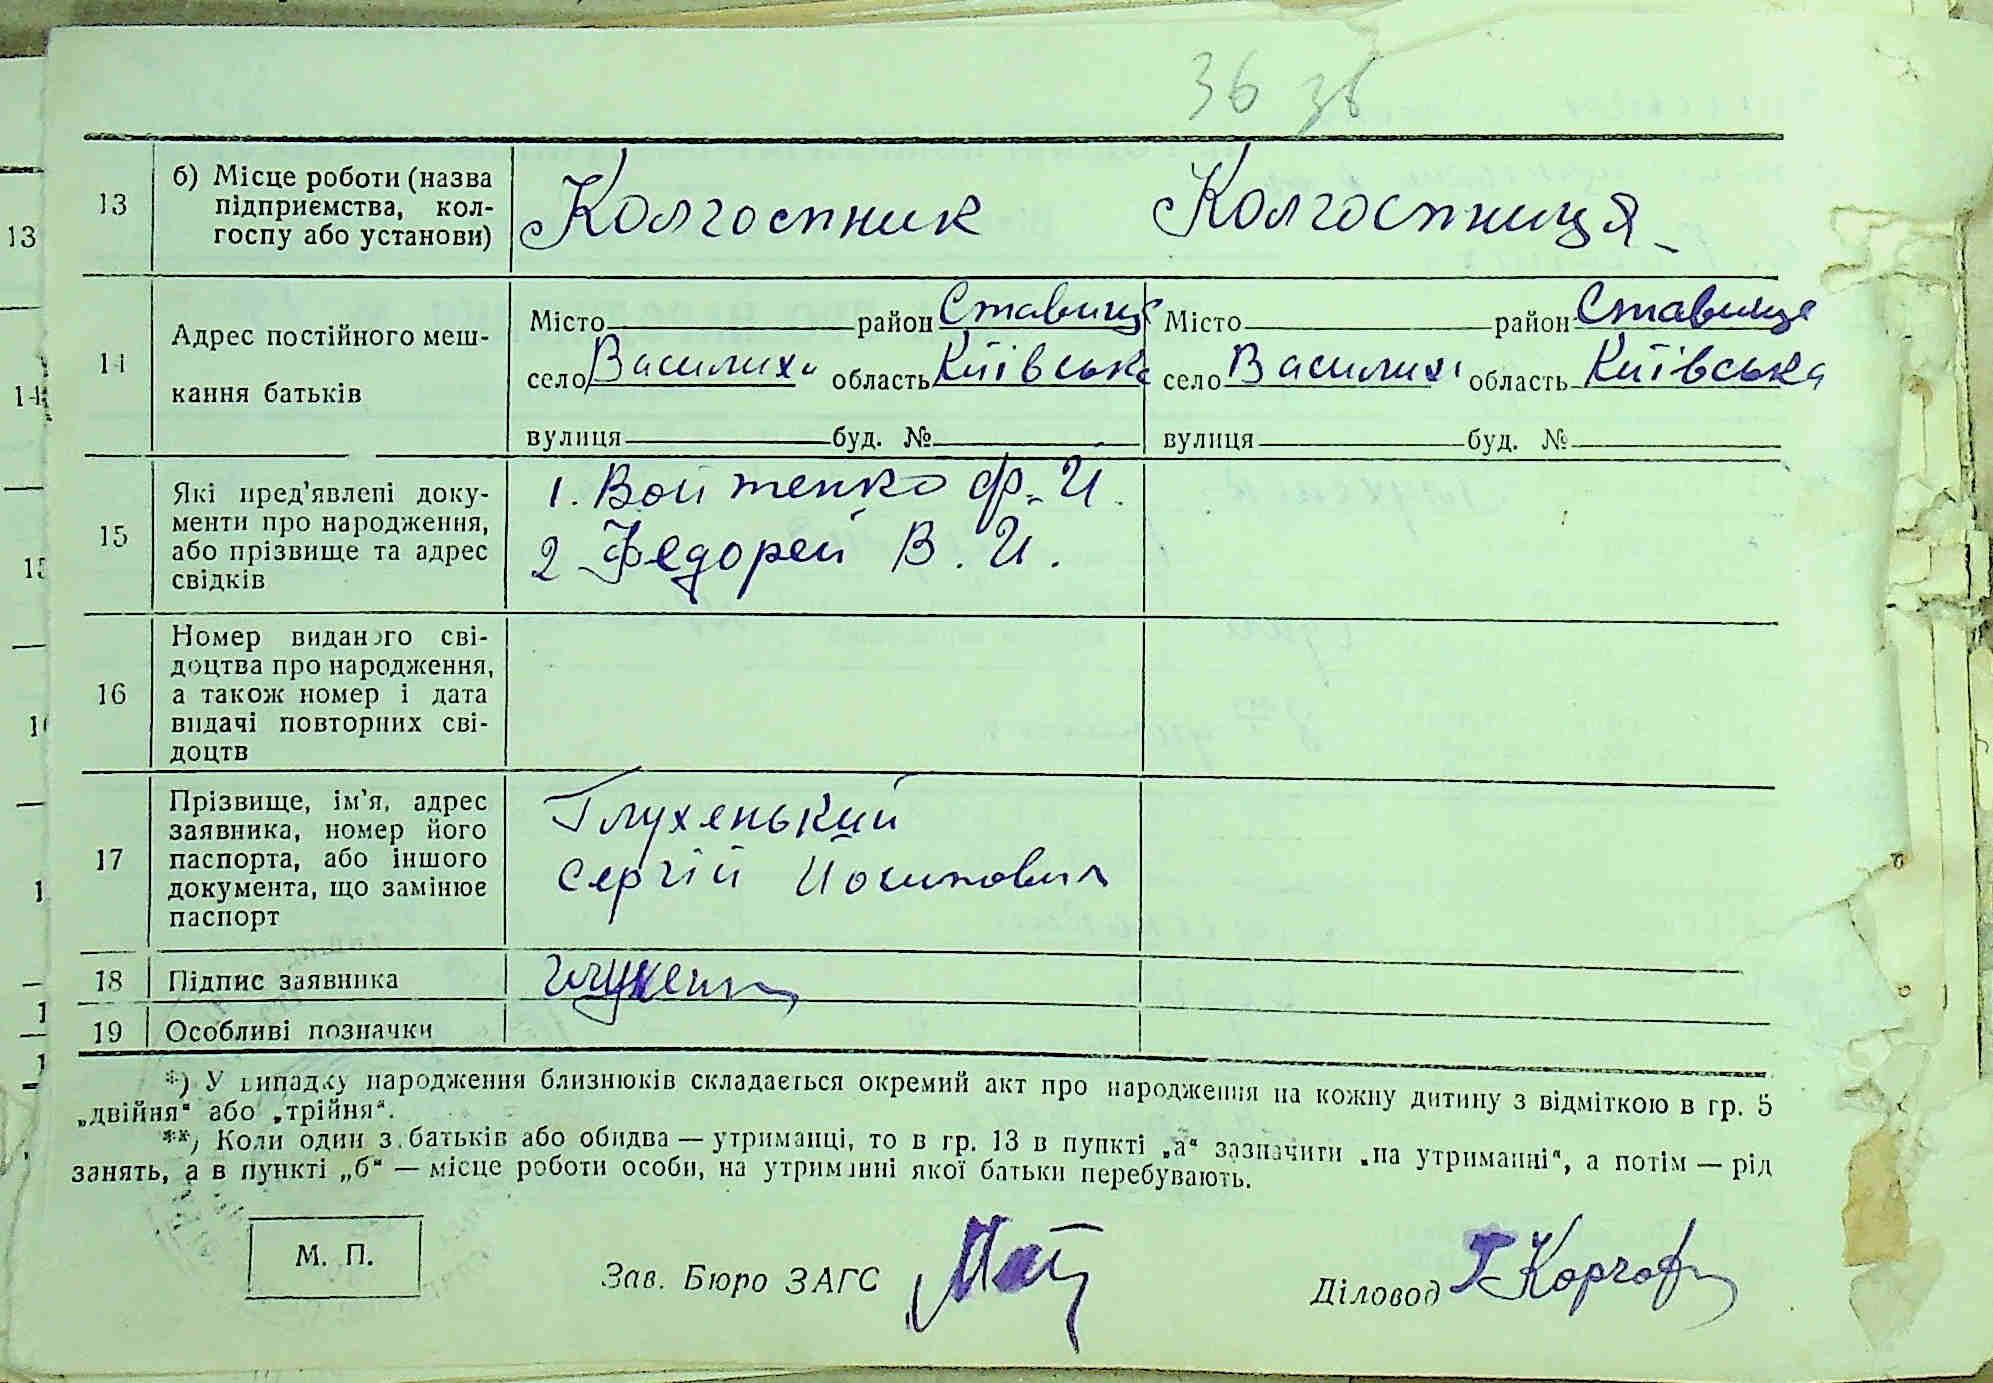 36 зв
13 б) Місце роботи (назва підприємства, колгоспу або установи) Колгоспник Колгоспниця
14 Адрес постійного мешкання батьків
Місто район Ставище Місто район Ставище
село Василиха область Київська село Василиха область Київська
вулиця буд. № вулиця буд. №
15 Які пред'явлені документи про народження, або прізвище та адрес свідків
1. Войтенко Ф. И.
2 Федорей В. И.
16 Номер виданого свідоцтва про народження, а також номер і дата видачі повторних свідоцтв
17 Прізвище, ім'я, адрес заявника, номер його паспорта, або іншого документа, що замінює паспорт
Глухенький
Сергій Йосипович
18 Підпис заявника
19 Особливі позначки
*) У випадку народження близнюків складається окремий акт про народження на кожну дитину з відміткою в гр. 5
„двійня“ або „трійня“.
**) Коли один з батьків або обидва — утриманці, то в гр. 13 в пункті „а“ зазначити „на утриманні“, а потім — рід
занять, а в пункті „б“ — місце роботи особи, на утриманні якої батьки перебувають.
М. П.
Зав. Бюро ЗАГС
Діловод
13